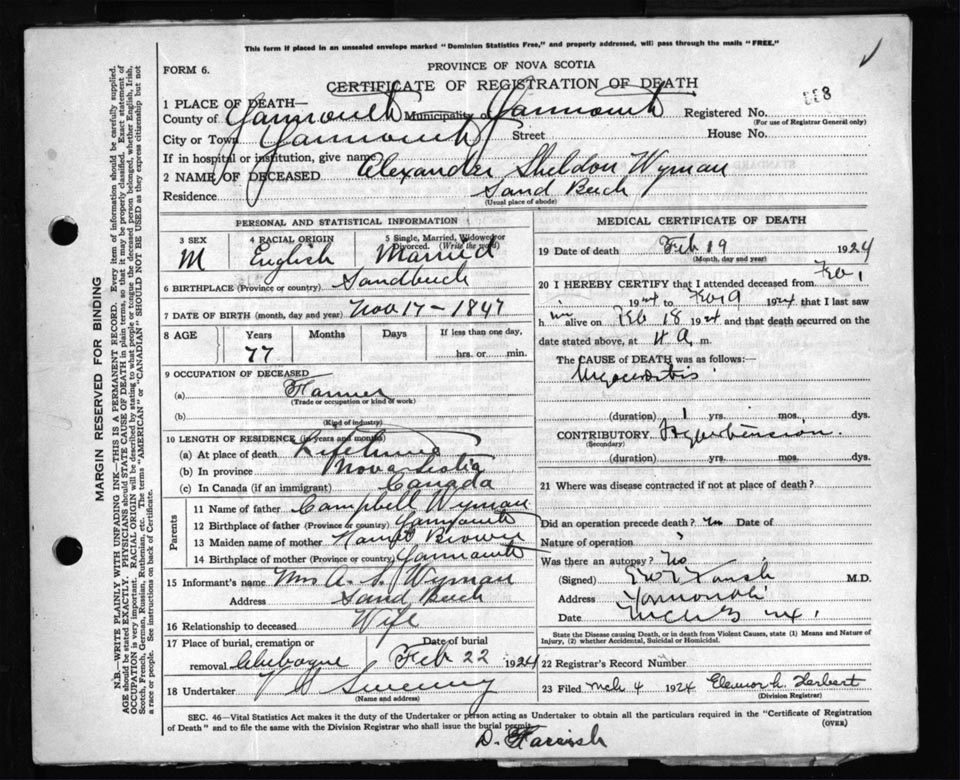 This form if placed in an unsealed envelope marked "Dominion Statistics Free," and properly addressed, will pass through the mails "FREE."
FORM 6.
PROVINCE OF NOVA SCOTIA
CERTIFICATE OF REGISTRATION OF DEATH
1 PLACE OF DEATH—
County of Yarmouth Municipality of Yarmouth Registered No. 558
(For use of Registrar General only)
City or Town Yarmouth Street House No.
If in hospital or institution, give name
2 NAME OF DECEASED Alexander Sheldon Wyman
Residence Sand Beach
(Usual place of abode)
PERSONAL AND STATISTICAL INFORMATION
3 SEX 4 RACIAL ORIGIN 5 Single, Married, Widowed or Divorced. (Write the word)
M English Married
6 BIRTHPLACE (Province or country) Sandbeach
7 DATE OF BIRTH (month, day and year) Nov 17 - 1847
8 AGE Years Months Days If less than one day,
77 hrs. or min.
9 OCCUPATION OF DECEASED
(a) Farmer
(Trade or occupation or kind of work)
(b)
(Kind of industry)
10 LENGTH OF RESIDENCE (in years and months)
(a) At place of death Lifetime
(b) In province Nova Scotia
(c) In Canada (if an immigrant) Canada
Parents
11 Name of father Campbell Wyman
12 Birthplace of father (Province or country) Yarmouth
13 Maiden name of mother Brown
14 Birthplace of mother (Province or country) Yarmouth
15 Informant's name Mrs A. S. Wyman
Address Sand Beach
16 Relationship to deceased Wife
17 Place of burial, cremation or removal Chebogue Date of burial Feb 22 1924
18 Undertaker V S Sweeny
(Name and address)
MEDICAL CERTIFICATE OF DEATH
19 Date of death Feb 19 1924
(Month, day and year)
20 I HEREBY CERTIFY that I attended deceased from Feb 1
1924 to Feb 19 1924 that I last saw
h im alive on Feb 18 1924 and that death occurred on the
date stated above, at 4 a. m.
The CAUSE OF DEATH was as follows:—
Myocarditis
(duration) 1 yrs. mos. dys.
CONTRIBUTORY Hypertension.
(Secondary)
(duration) yrs. mos. dys.
21 Where was disease contracted if not at place of death?
Did an operation precede death? no Date of
Nature of operation
Was there an autopsy? No
(Signed) M.D.
Address Yarmouth
Date
State the Disease causing Death, or in death from Violent Causes, state (1) Means and Nature of Injury, (2) whether Accidental, Suicidal or Homicidal.
22 Registrar's Record Number
23 Filed Mch 4 1924 Eleanor L. Herbert
(Division Registrar)
SEC. 46—Vital Statistics Act makes it the duty of the Undertaker or person acting as Undertaker to obtain all the particulars required in the "Certificate of Registration
of Death" and to file the same with the Division Registrar who shall issue the burial permit. (OVER)
D. Farrish
MARGIN RESERVED FOR BINDING
N.B.—WRITE PLAINLY WITH UNFADING INK—THIS IS A PERMANENT RECORD. Every item of information should be carefully supplied.
AGE should be stated EXACTLY. PHYSICIANS should STATE CAUSE OF DEATH in plain terms, so that it may be properly classified. Exact statement of
OCCUPATION is very important. RACIAL ORIGIN will be described by stating to what people or tongue the deceased person belonged, whether English, Irish,
Scotch, French, German, Russian, Ruthenian, etc. The terms "AMERICAN" or "CANADIAN" SHOULD NOT BE USED as they express citizenship but not
a race or people. See instructions on back of Certificate.